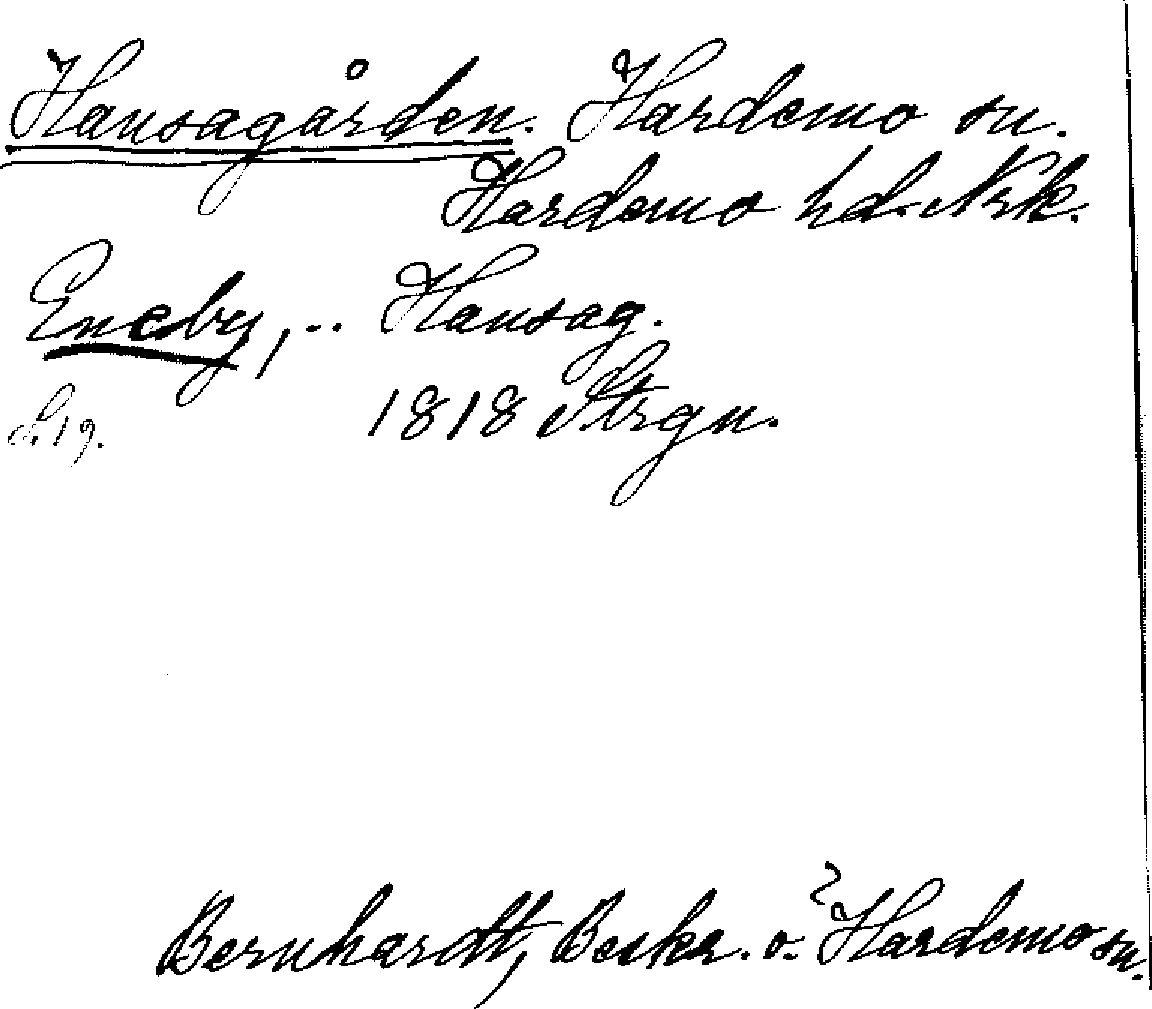 Hansagården. Hardemo sn.
Hardemo hd. Nrk.
Eneby, .. Hansag.
S. 19. 1818 Strgn.
Bernhardt, Beskr. o. Hardemo sn.